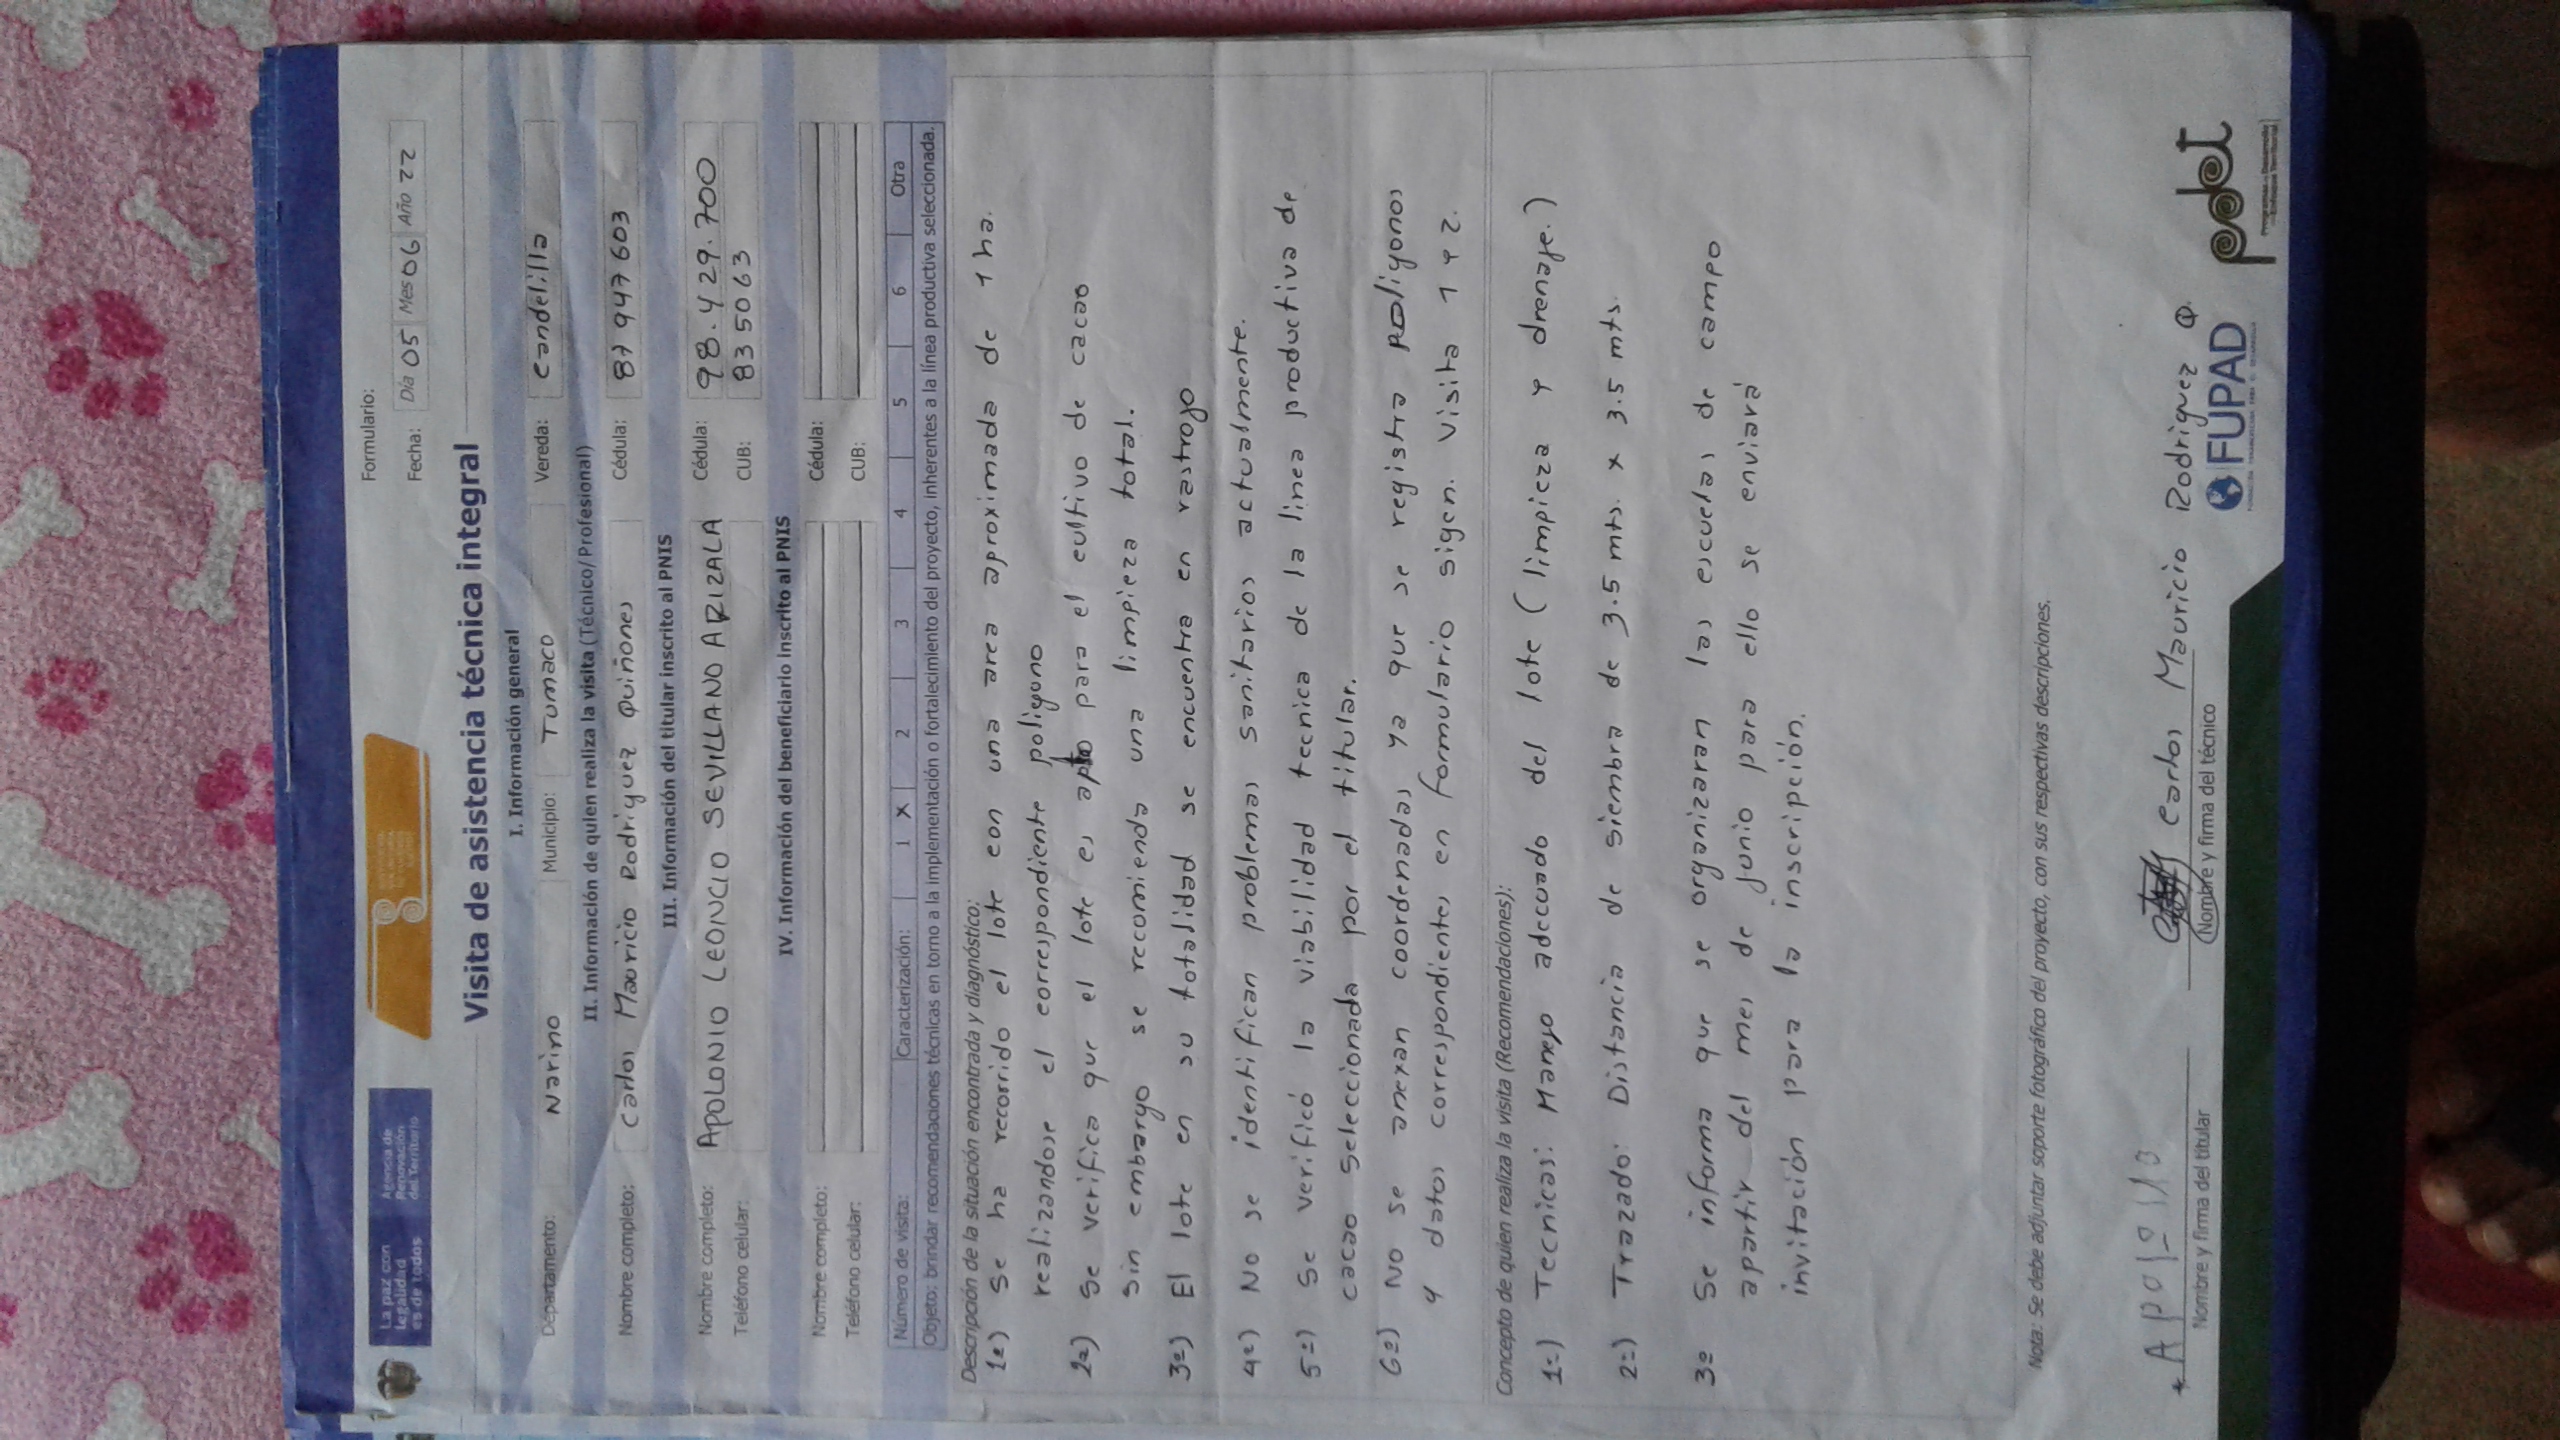 La paz con
legalidad
es de todos
Agencia de
Renovación
del Territorio
Formulario:
Fecha: Día 05 Mes 06 Año 22
Visita de asistencia técnica integral
I. Información general
Departamento: Nariño Municipio: TUMACO Vereda: candelilla
II. Información de quien realiza la visita (Técnico/ Profesional)
Nombre completo: Carlos Mauricio Rodriguez Quiñones Cédula: 87947603
III. Información del titular inscrito al PNIS
Nombre completo: APOLONIO LEONCIO SEVILLANO ARIZALA Cédula: 98.429.700
Teléfono celular: CUB: 835063
IV. Información del beneficiario inscrito al PNIS
Nombre completo: Cédula:
Teléfono celular: CUB:
Número de visita: Caracterización: 1 X 2 3 4 5 6 Otra
Objeto: brindar recomendaciones técnicas en torno a la implementación o fortalecimiento del proyecto, inherentes a la línea productiva seleccionada.
Descripción de la situación encontrada y diagnóstico:
1º) Se ha recorrido el lote con una area aproximada de 1 ha.
realizandose el correspondiente poligono
2º) Se verifica que el lote es apto para el cultivo de cacao
sin embargo se recomienda una limpieza total.
3º) El lote en su totalidad se encuentra en rastrojo
4º) No se identifican problemas sanitarios actualmente.
5º) Se verificó la viabilidad tecnica de la linea productiva de
cacao seleccionada por el titular.
6º) No se anexan coordenadas ya que se registra poligonos
y datos correspondientes en formulario sigen. Visita 1 y 2.
Concepto de quien realiza la visita (Recomendaciones):
1º) Tecnicas: Manejo adecuado del lote (limpieza y drenaje.)
2º) Trazado: Distancia de siembra de 3.5 mts. x 3.5 mts.
3º Se informa que se organizaran las escuelas de campo
apartir del mes de junio para ello se enviará
invitación para la inscripción.
Nota: Se debe adjuntar soporte fotográfico del proyecto, con sus respectivas descripciones.
Carlos Mauricio Rodriguez Q.
Nombre y firma del titular
Nombre y firma del técnico
FUPAD
pdet